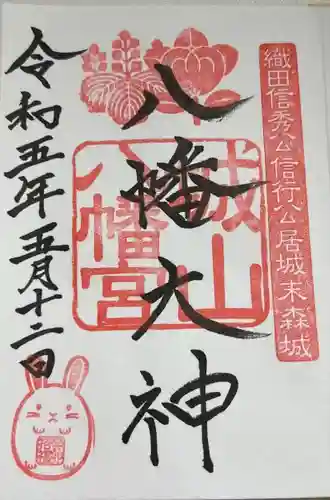 織田信秀公信行公居城末森城
八幡大神
城山八幡宮
令和五年五月十二日